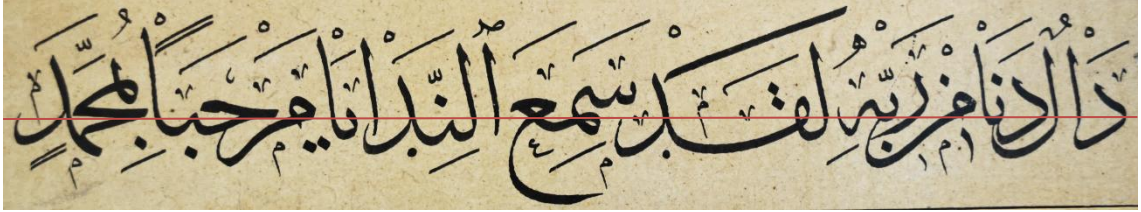 دَالٌ دَنَا مِنْ رَبِّهِ لَقَدْ سَمِعَ اَلنِّدَا يَا مَرْحَبًا بِمُحَمَّدٍ